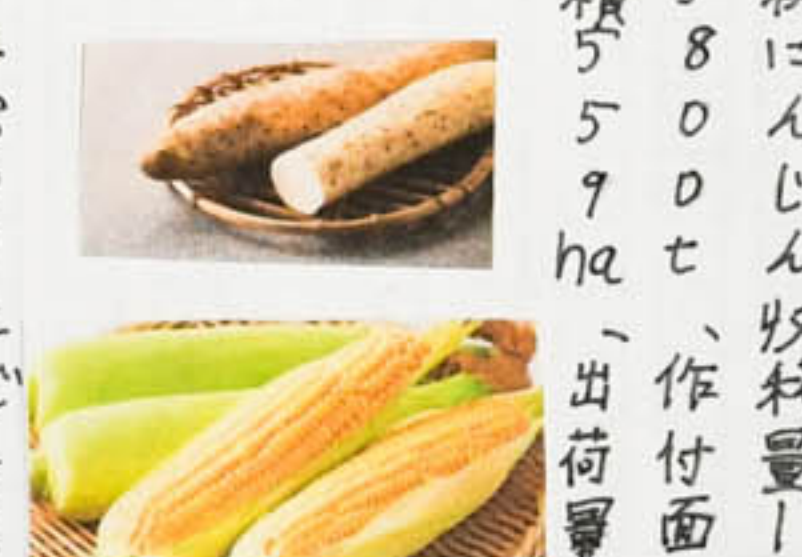 にんじん収穫量1
800t、作付面
積559ha、出荷量